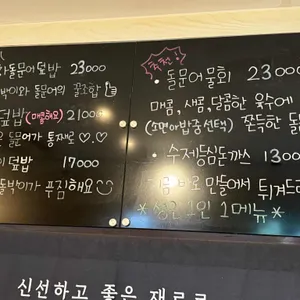 돌문어덮밥 23000
박이와 돌문어의 꿀조합
덮밥(매콤해요) 21000
돌문어가 통째로♡.♡
덮밥 17000
돌박이가 푸짐해요
추천!
• 돌문어물회 23000
매콤, 새콤, 달콤한 육수에
(소면or밥 중 선택) 쫀득한 돌
• 수제등심돈까스 13000
바로 만들어서 튀겨드
*성인 1인 1메뉴*
신선하고 좋은 재료로